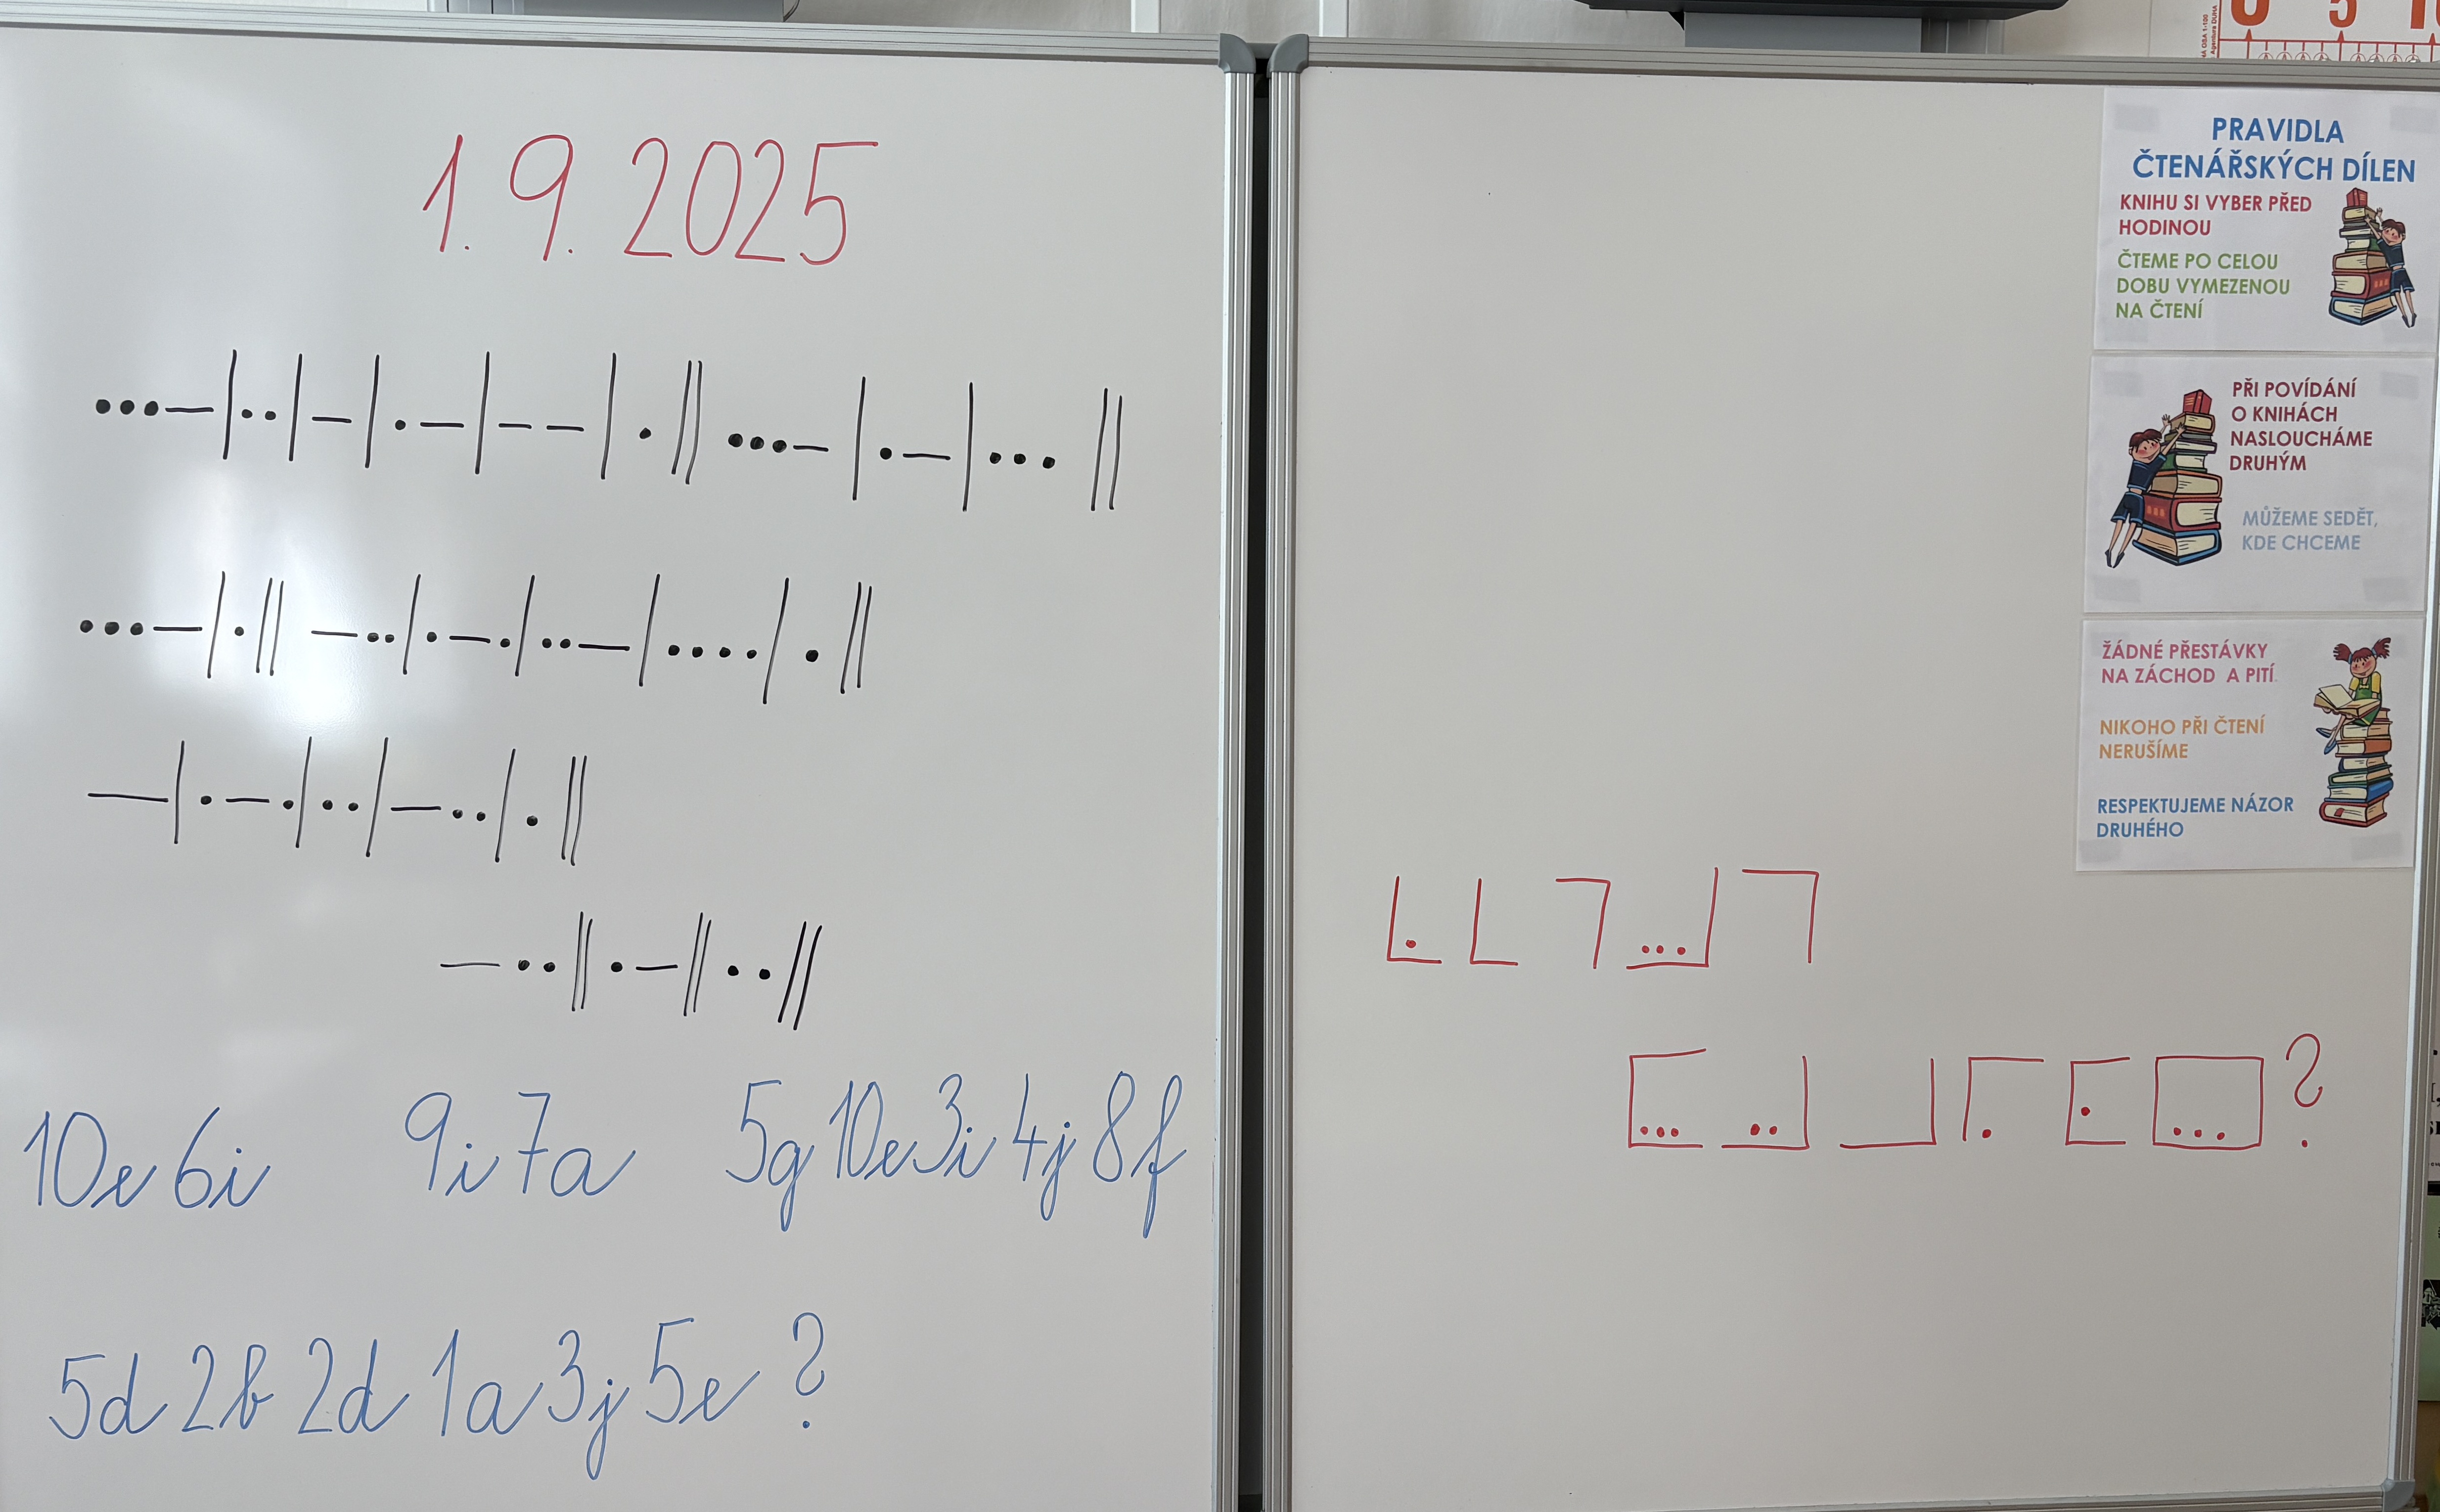 1. 9. 2025
•••—|••|—|•—|——|•||•••—|•—|•••||
•••—|•||—••|•—•|••—|••••|•||
—|•—•|••|—••|•||
—••||•—||••||
10e 6i 9i 7a 5g 10e 3i 4j 8f
5d 2b 2d 1a 3j 5e ?
?
PRAVIDLA
ČTENÁŘSKÝCH DÍLEN
KNIHU SI VYBER PŘED
HODINOU
ČTEME PO CELOU
DOBU VYMEZENOU
NA ČTENÍ
PŘI POVÍDÁNÍ
O KNIHÁCH
NASLOUCHÁME
DRUHÝM
MŮŽEME SEDĚT,
KDE CHCEME
ŽÁDNÉ PŘESTÁVKY
NA ZÁCHOD A PITÍ.
NIKOHO PŘI ČTENÍ
NERUŠÍME
RESPEKTUJEME NÁZOR
DRUHÉHO